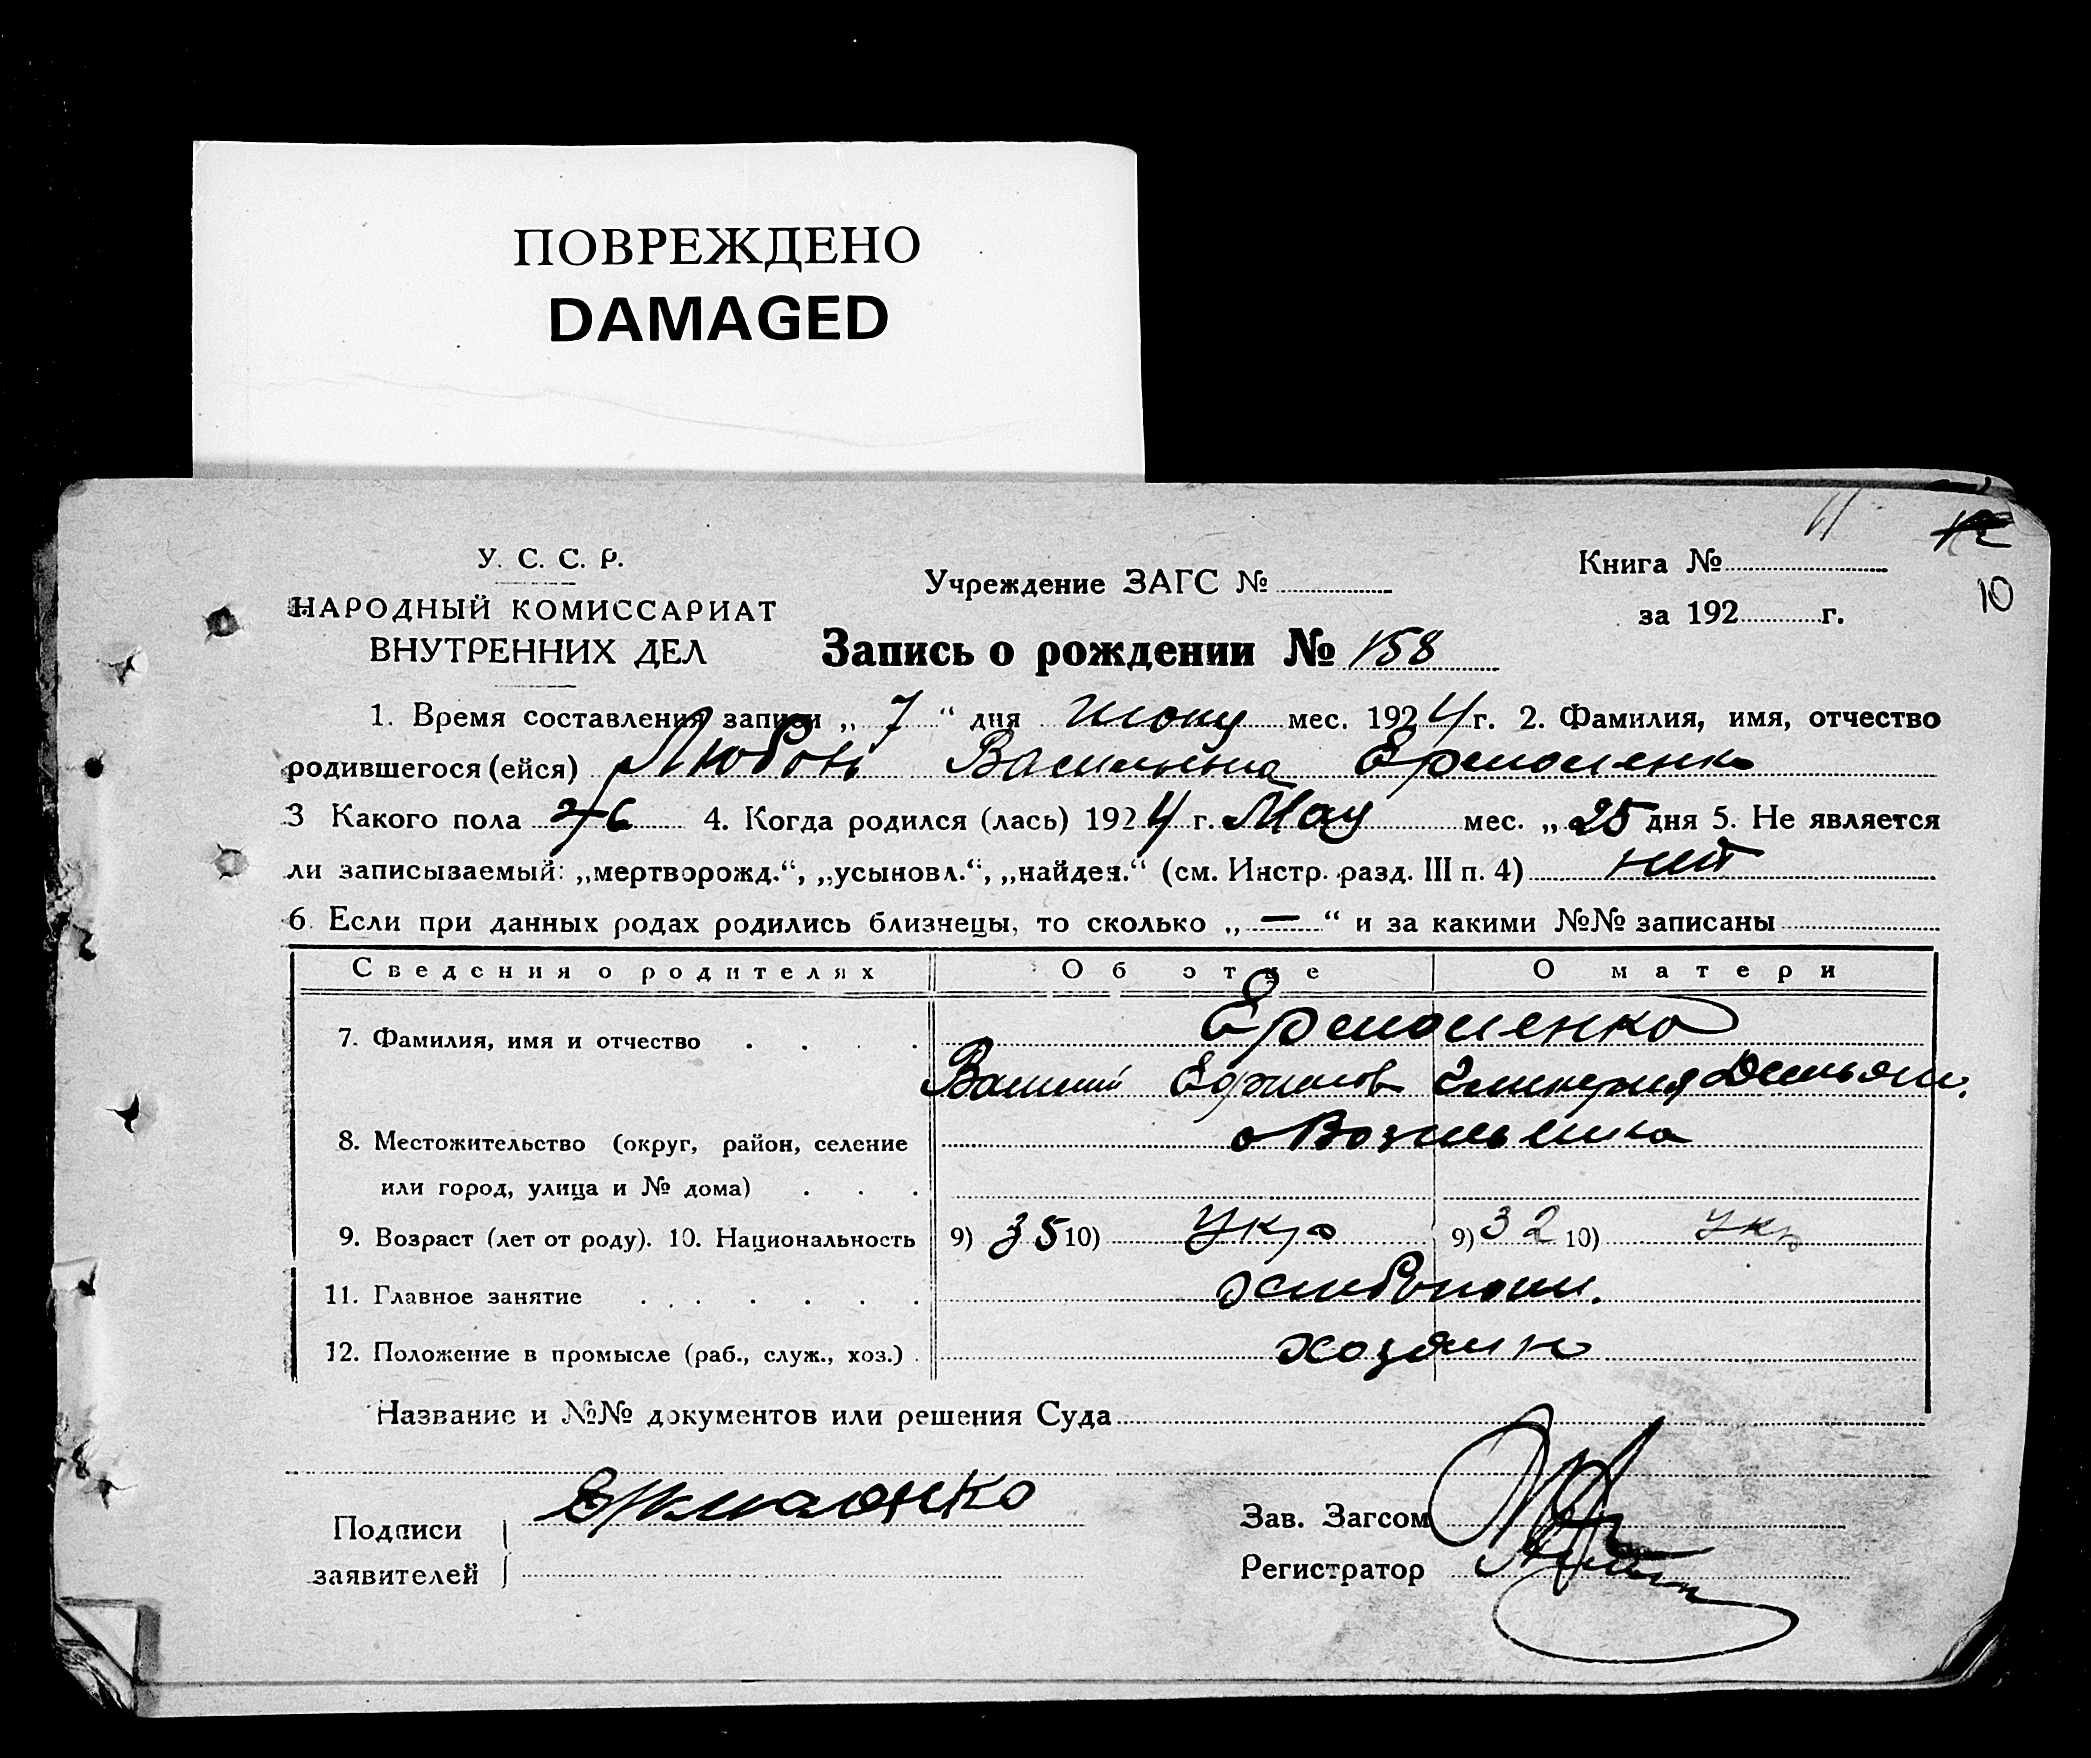 ПОВРЕЖДЕНО
DAMAGED
11
12
10
У. С. С. Р.
НАРОДНЫЙ КОМИССАРИАТ
ВНУТРЕННИХ ДЕЛ
Учреждение ЗАГС №
Книга №
за 192 г.
Запись о рождении № 158
1. Время составления записи „ 7 “ дня июня мес. 1924 г. 2. Фамилия, имя, отчество
родившегося (ейся) Любовь Васильевна Ермоленко
3 Какого пола жс 4. Когда родился (лась) 1924 г. Мая мес. „ 25 дня 5. Не является
ли записываемый: „мертворожд.“, „усыновл.“, „найден.“ (см. Инстр. разд. III п. 4) нет
6. Если при данных родах родились близнецы, то сколько „ — “ и за какими №№ записаны
Сведения о родителях Об отце О матери
7. Фамилия, имя и отчество Ермоленко
Василий Ефимов Гликерия Демьян.
8. Местожительство (округ, район, селение
или город, улица и № дома)
9. Возраст (лет от роду). 10. Национальность 9) 35 10) Укр 9) 32 10) Укр
11. Главное занятие хлебопаш.
12. Положение в промысле (раб., служ., хоз.) хозяин
Название и №№ документов или решения Суда
Подписи Ермоленко
заявителей
Зав. Загсом
Регистратор